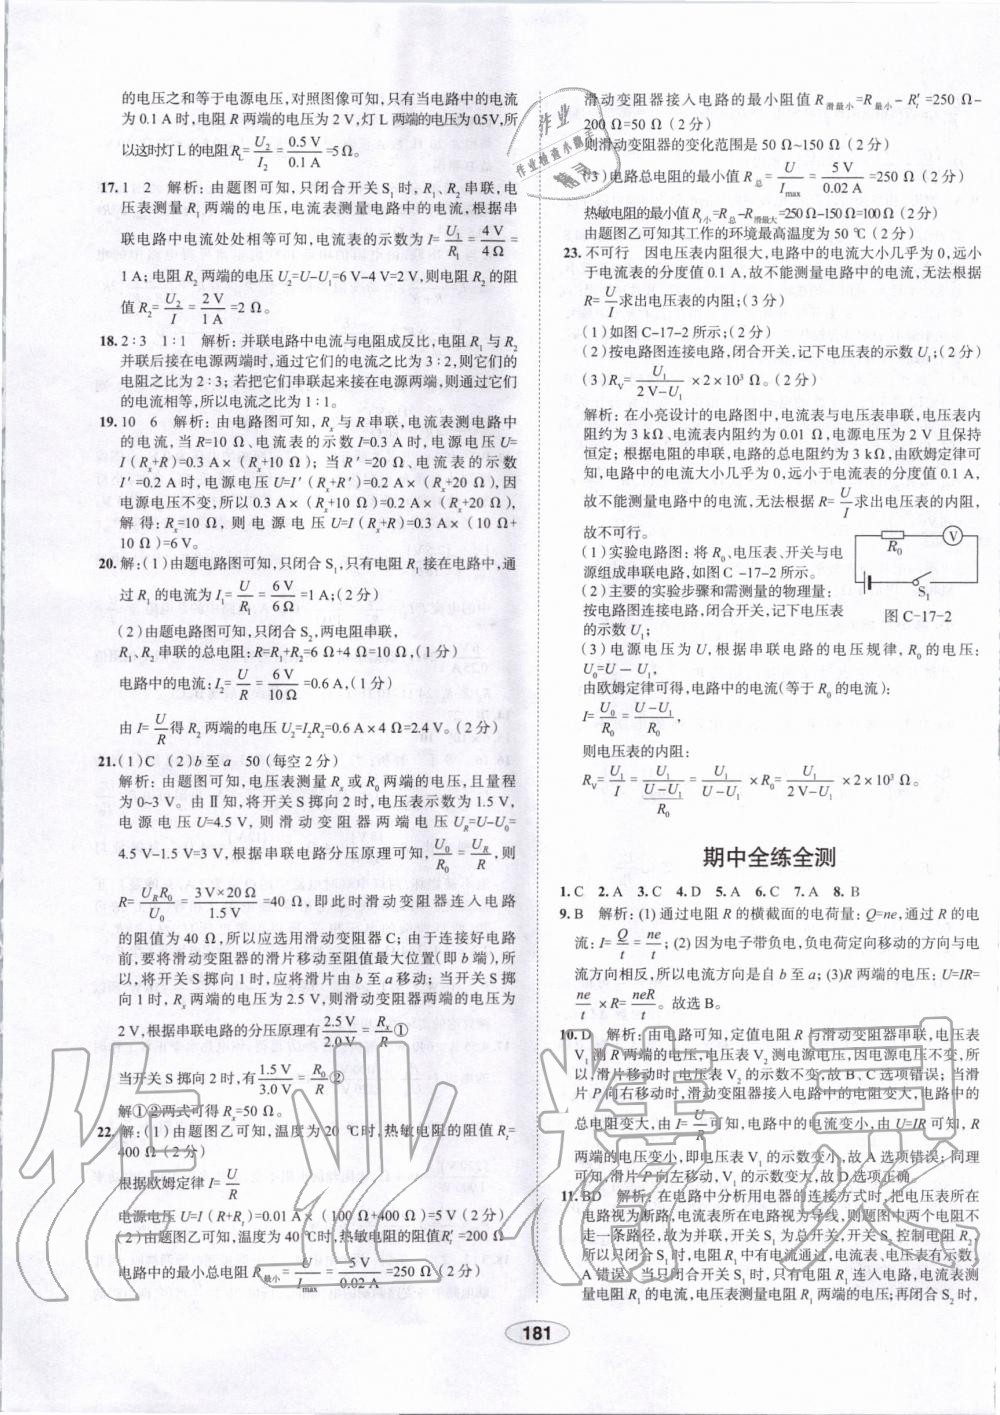 的电压之和等于电源电压，对照图像可知，只有当电路中的电流
为0.1 A时，电阻R两端的电压为2 V，灯L的电压为0.5V，所
以这时灯L的电阻R_L=U₂/I₂=0.5 V/0.1 A=5Ω。
17.1　2　解析：由题图可知，只闭合开关S₁时，R₁、R₂串联，电
压表测量R₁两端的电压，电流表测量电路中的电流，根据串
联电路中电流处处相等可知，电流表的示数为I=U₁/R₁=4 V/4 Ω=
1 A；电阻R₂两端的电压U₂=U-U₁=6 V-4 V=2 V，则电阻R₂的阻
值R₂=U₂/I=2 V/1 A=2 Ω。
18.2∶3　1∶1　解析：并联电路中电流与电阻成反比，电阻R₁和R₂
并联后接在电源两端时，通过它们的电流之比为3∶2，则它们的
电阻之比为2∶3；若把它们串联起来接在电源两端，则通过它们
的电流相等，所以电流之比为1∶1。
19.10　6　解析：由电路图可知，Rₓ与R串联，电流表测电路中
的电流，当R=10 Ω、电流表的示数I=0.3 A时，电源电压U=
I(Rₓ+R)=0.3 A×(Rₓ+10 Ω)；当R′=20 Ω、电流表的示数
I′=0.2 A时，电源电压U=I′(Rₓ+R′)=0.2 A×(Rₓ+20 Ω)，因
电源电压不变，所以0.3 A×(Rₓ+10 Ω)=0.2 A×(Rₓ+20 Ω)，
解得：Rₓ=10 Ω，则电源电压U=I(Rₓ+R)=0.3 A×(10 Ω+
10 Ω)=6 V。
20.解：(1)由题电路图可知，只闭合S₁，只有电阻R₁接在电路中，通
过R₁的电流为I₁=U/R₁=6 V/6 Ω=1 A；(2分)
(2)由题电路图可知，只闭合S₂，两电阻串联，
R₁、R₂串联的总电阻：R=R₁+R₂=6 Ω+4 Ω=10 Ω，(1分)
电路中的电流：I₂=U/R=6 V/10 Ω=0.6 A，(1分)
由I=U/R得R₂两端的电压U₂=I₂R₂=0.6 A×4 Ω=2.4 V。(2分)
21.(1)C　(2)b至a　50(每空2分)
解析：由题图可知，电压表测量Rₓ或R₀两端的电压，且量程
为0~3 V。由Ⅱ知，将开关S掷向2时，电压表示数为1.5 V，
电源电压U=4.5 V，则滑动变阻器两端电压U_R=U-U₀=
4.5 V-1.5 V=3 V，根据串联电路分压原理可知，U₀/R₀=U_R/R，则
R=U_RR₀/U₀=3 V×20 Ω/1.5 V=40 Ω，即此时滑动变阻器连入电路
的阻值为40 Ω，所以应选用滑动变阻器C；由于连接好电路
前，要将滑动变阻器的滑片移动至阻值最大位置(即b端)，所
以，将开关S掷向1时，应将滑片由b至a移动；当开关S掷
向1时，Rₓ两端的电压为2.5 V，则滑动变阻器两端的电压为
2 V，根据串联电路的分压原理有2.5 V/2.0 V=Rₓ/R①
当开关S掷向2时，有1.5 V/3.0 V=R₀/R②
解①②两式可得Rₓ=50 Ω。
22.解：(1)由题图乙可知，温度为20 ℃时，热敏电阻的阻值Rₜ=
400 Ω(2分)
根据欧姆定律I=U/R
电源电压U=I(R+Rₜ)=0.01 A×(100 Ω+400 Ω)=5 V(2分)
(2)由题图乙可知，温度为40 ℃时，热敏电阻的阻值Rₜ′=200 Ω
电路中的最小总电阻R最小=U/Imax=5 V/0.02 A=250 Ω(2分)
滑动变阻器接入电路的最小阻值R滑最小=R最小-Rₜ′=250 Ω-
200 Ω=50 Ω(2分)
则滑动变阻器的变化范围是50 Ω~150 Ω(2分)
(3)电路总电阻的最小值R总=U/Imax=5 V/0.02 A=250 Ω(2分)
热敏电阻的最小值Rₜ小=R总-R滑最大=250 Ω-150 Ω=100 Ω(2分)
由题图乙可知其工作的环境最高温度为50 ℃(2分)
23.不可行　因电压表内阻很大，电路中的电流大小几乎为0，远小
于电流表的分度值0.1 A，故不能测量电路中的电流，无法根据
R=U/I求出电压表的内阻；(3分)
(1)如图C-17-2所示；(2分)
(2)按电路图连接电路，闭合开关，记下电压表的示数U₁；(2分)
(3)R_V=U₁/(2 V-U₁)×2×10³ Ω。(2分)
解析：在小亮设计的电路图中，电流表与电压表串联，电压表内
阻约为3 kΩ、电流表内阻约为0.01 Ω，电源电压为2 V且保持
恒定；根据电阻的串联，电路的总电阻约为3 kΩ，由欧姆定律可
知，电路中的电流大小几乎为0，远小于电流表的分度值0.1 A，
故不能测量电路中的电流，无法根据R=U/I求出电压表的内阻，
故不可行。
(1)实验电路图：将R₀、电压表、开关与电
源组成串联电路，如图C-17-2所示。
(2)主要的实验步骤和需测量的物理量：
按电路图连接电路，闭合开关，记下电压表
的示数U₁；
R₀
V
S₁
图C-17-2
(3)电源电压为U，根据串联电路的电压规律，R₀的电压：
U₀=U-U₁，
由欧姆定律可得，电路中的电流(等于R₀的电流)：
I=U₀/R₀=(U-U₁)/R₀，
则电压表的内阻：
R_V=U₁/I=U₁/((U-U₁)/R₀)=U₁/(U-U₁)×R₀=U₁/(2 V-U₁)×2×10³ Ω。
期中全练全测
1.C　2.A　3.C　4.D　5.A　6.C　7.A　8.B
9.B　解析：(1)通过电阻R的横截面的电荷量：Q=ne，通过R的电
流：I=Q/t=ne/t；(2)因为电子带负电，负电荷定向移动的方向与电
流方向相反，所以电流方向是自b至a；(3)R两端的电压：U=IR=
ne/t×R=neR/t。故选B。
10.D　解析：由电路可知，定值电阻R与滑动变阻器串联，电压表
V₁测R两端的电压，电压表V₂测电源电压，因电源电压不变，所
以，滑片移动时，电压表V₂的示数不变，故B、C选项错误；当滑
片P向右移动时，滑动变阻器接入电路中的电阻变大，电路中的
总电阻变大，由I=U/R可知，电路中的电流变小，由U=IR可知，R
两端的电压变小，即电压表V₁的示数变小，故A选项错误；同理
可知，滑片P向左移动，V₁的示数变大，故D选项正确。
11.BD　解析：在电路中分析用电器的连接方式时，把电压表所在
电路视为断路，电流表所在电路视为导线，则题图中电流不止
一条路径，故为并联，开关S₁为总开关，开关S₂控制电阻R₂，
所以只闭合S₁时，电阻R₁中有电流通过，电流表、电压表有示数，
A错误。当只闭合开关S₁时，只有电阻R₁连入电路，电流表测
量电阻R₁的电流，电压表测量电阻R₁两端的电压；再闭合S₂时，
181
作业精灵
作业
作业检查小助手
精灵